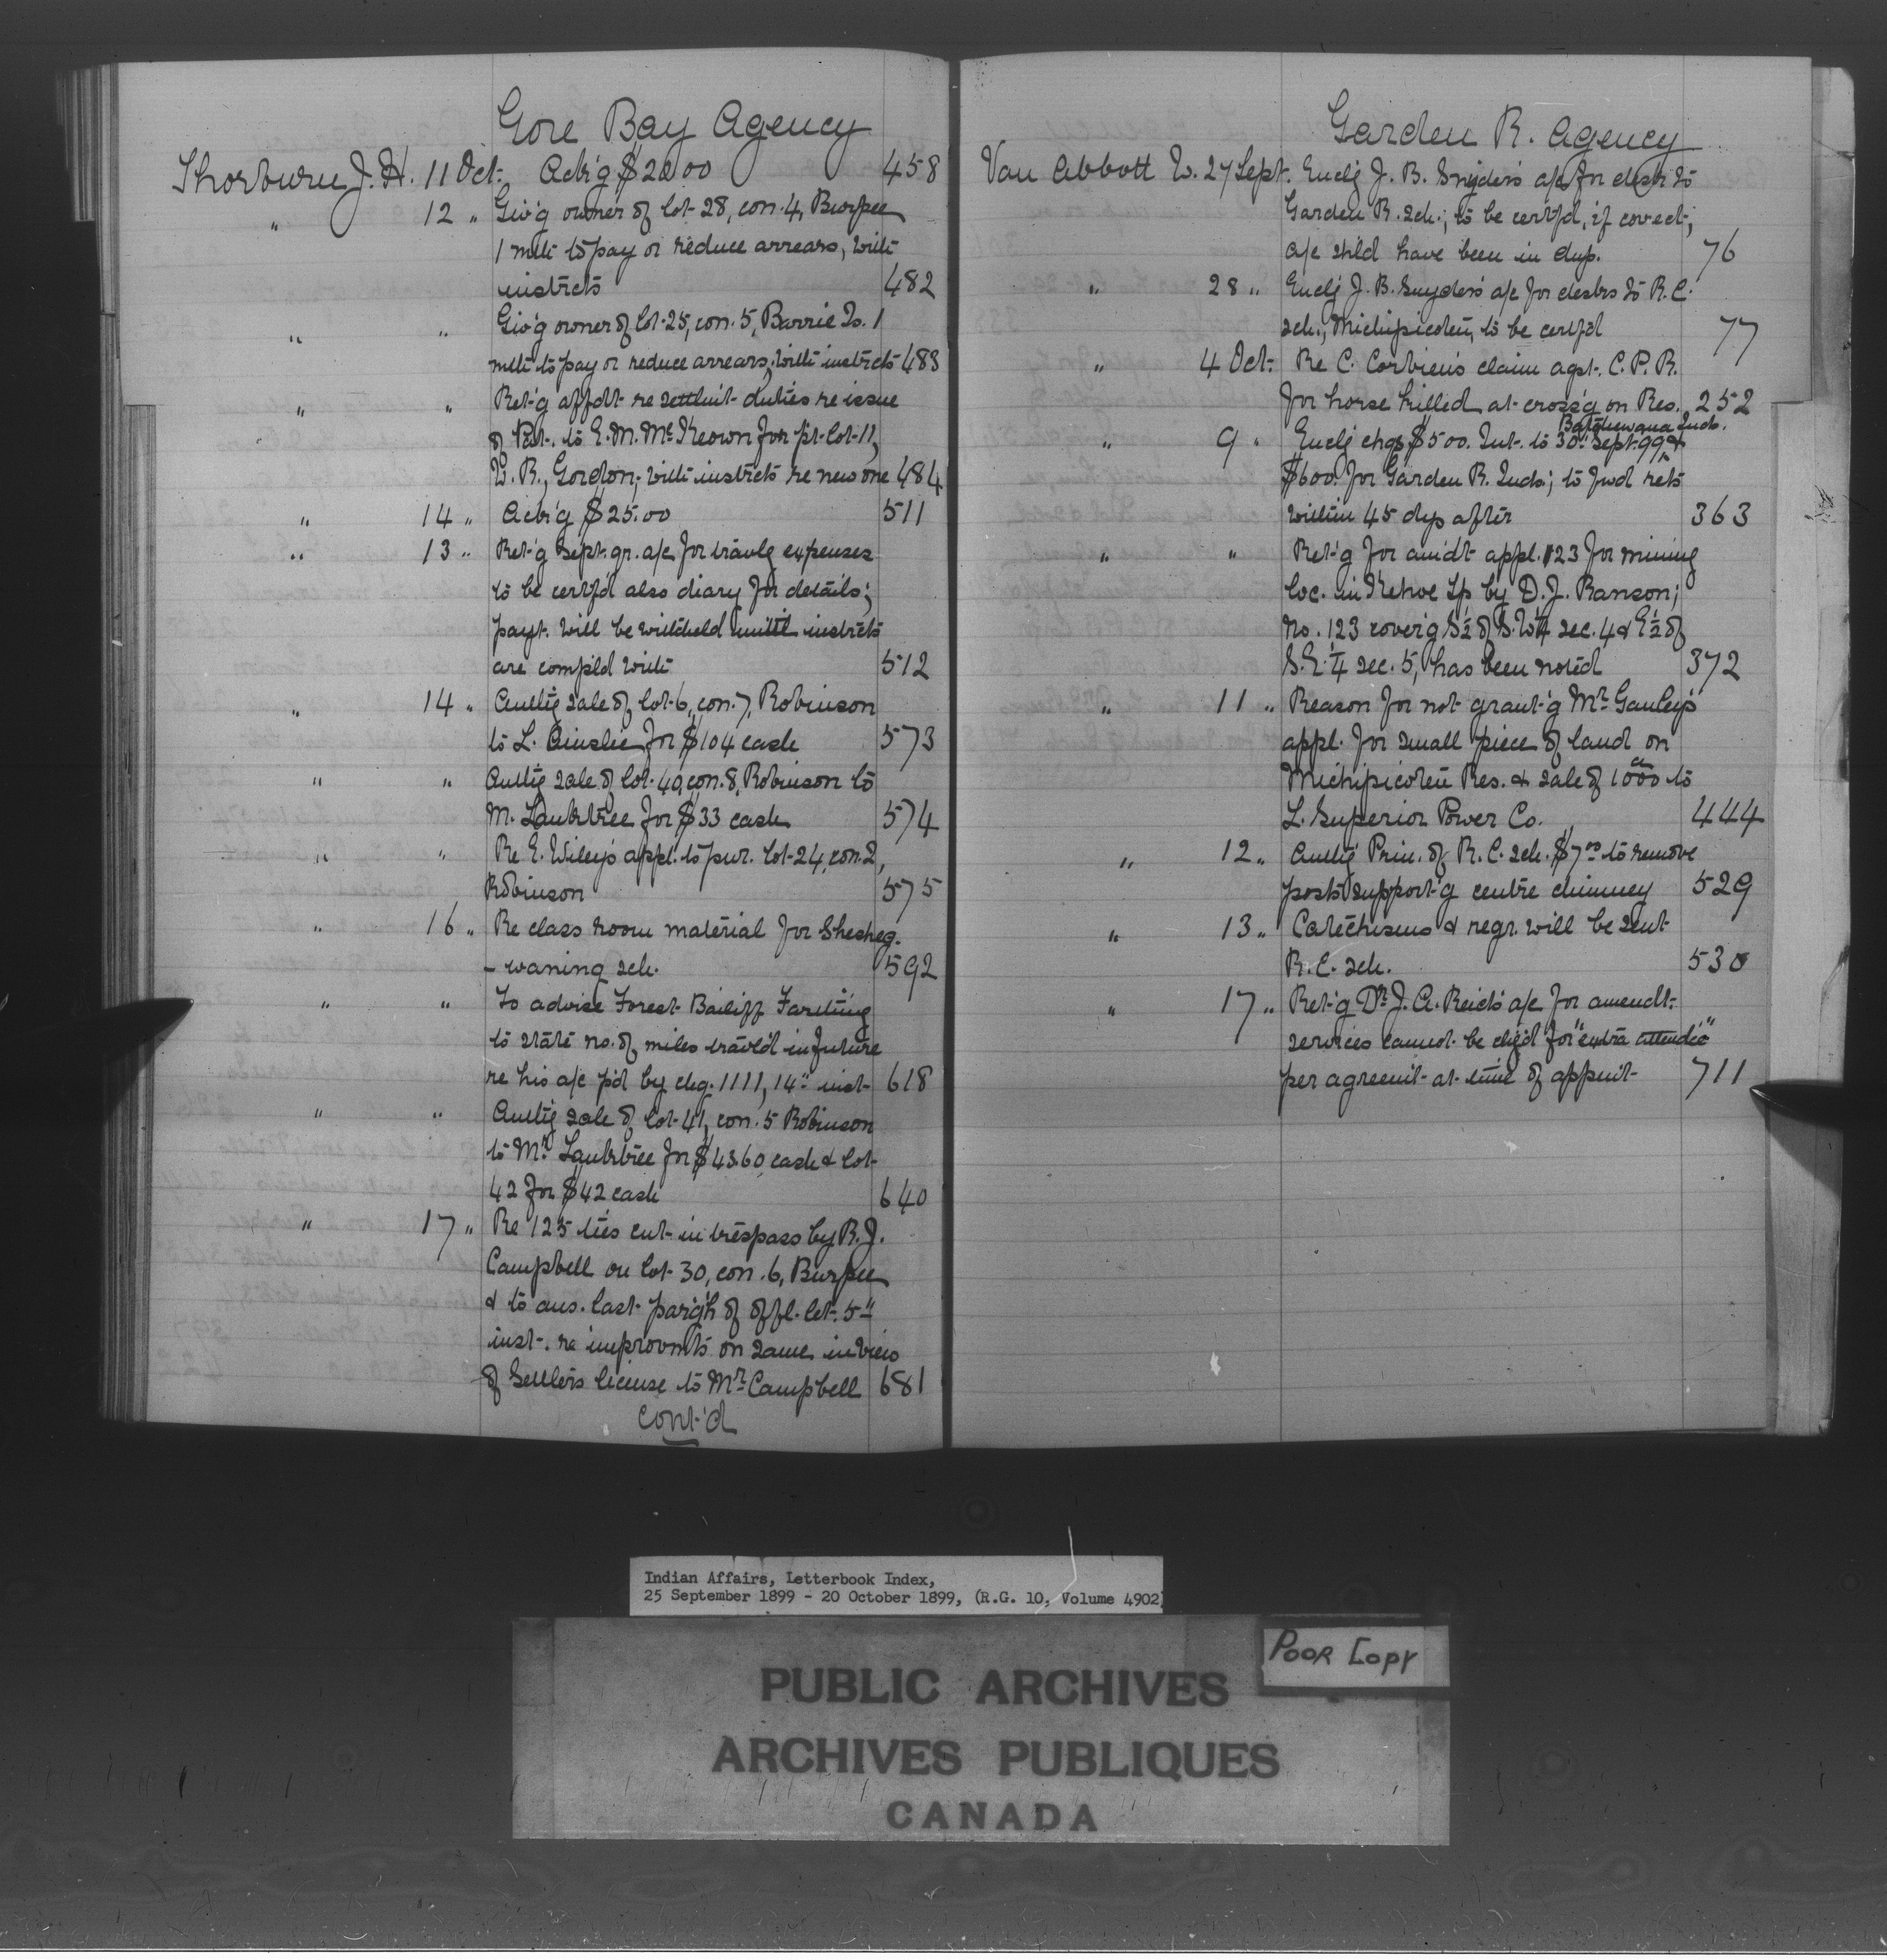 Gore Bay Agency
Thorburn J. H. 11 Oct. Ackg $20.00 458
" 12 " Giv'g owner of lot 28, con. 4, Burpee
1 mth to pay or reduce arrears, with
instrcts 482
" " Giv'g owner of lot 25, con. 5, Barrie Is. 1
mth to pay or reduce arrears, with instrcts 483
" " Ret'g affdt re settlmt duties re issue
of Pat. to E. M. McKeown for pt. lot 11,
W. R., Gordon; with instrcts re new one 484
" 14 " Ack'g $25.00 511
" 13 " Ret'g Sept. qr. a/c for travlg expenses
to be certf'd also diary for details;
payt. will be withheld until instrcts
are compl'd with 512
" 14 " Authg sale of lot 6, con. 7, Robinson
to L. Ainslie for $104 cash 573
" " Authg sale of lot 40, con. 8, Robinson to
M. Lambtree for $33 cash 574
" " Re E. Wiley's appl. to pur. lot 24, con. 2,
Robinson 575
" 16 " Re class room material for Shesheg-
-waning sch. 592
" " To advise Forest Bailiff
to state no. of miles travl'd in future
re his a/c p'd by chq. 1111, 14" inst 618
" " Authg sale of lot 41, con. 5 Robinson
to Mr. Lambtree for $43.60 cash & lot
42 for $42 cash 640
" 17 " Re 125 ties cut in trespass by R. J.
Campbell on lot 30, con. 6, Burpee
& to ans. last parg'h of offl. let. 5"
inst. re improvmts on same in view
of Settlers license to Mr. Campbell 681
cont'd
Garden R. Agency
Van Abbott W. 27 Sept. Enclg J. B. Snyder's a/c for desks to
Garden R. sch.; to be certf'd, if correct;
a/c shld have been in dup. 76
" 28 " Enclg J. B. Snyder's a/c for desks to R. C.
sch., Michipicoten, to be certf'd 77
" 4 Oct. Re C. Corbiere's claim agst. C. P. R.
for horse killed at cross'g on Res. 252
Batchewana Inds.
" 9 " Enclg chqs $500. Int. to 30" Sept. 99 &
$600. for Garden R. Inds; to fwd rets
within 45 dys after 363
" " Ret'g for amdt appl. 123 for mining
loc. in Kehoe Tp by D. J. Ranson;
no. 123 cover'g S½ of S.W¼ sec. 4 & E½ of
S.E. ¼ sec. 5, has been noted 372
" 11 " Reason for not grant'g Mr. Ganley's
appl. for small piece of land on
Michipicoten Res. & sale of 1000 ac to
L. Superior Power Co. 444
" 12 " Authg Prin. of R. C. sch. $7 00 to remove
posts support'g centre chimney 529
" 13 " Catechisms & regr. will be sent
R. C. sch. 530
" 17 " Ret'g Dr. J. A. Reid's a/c for amendt.
services cannot be chg'd for "extra attendce"
per agreemt at time of appmt 711
Indian Affairs, Letterbook Index,
25 September 1899 - 20 October 1899, (R.G. 10, Volume 4902)
POOR COPY
PUBLIC ARCHIVES
ARCHIVES PUBLIQUES
CANADA